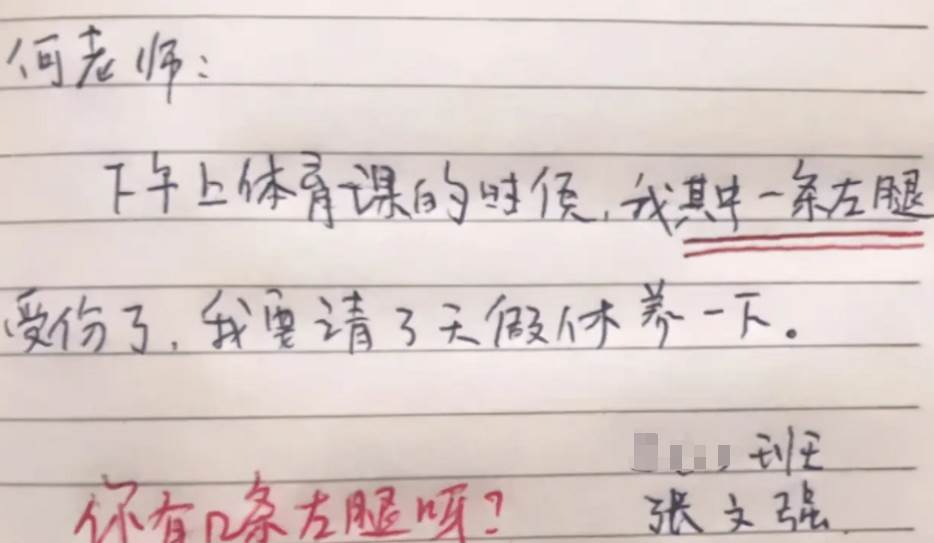 何老师：
下午上体育课的时候，我其中一条左腿
受伤了，我要请3天假休养一下。
班
张文强
你有几条左腿呀？